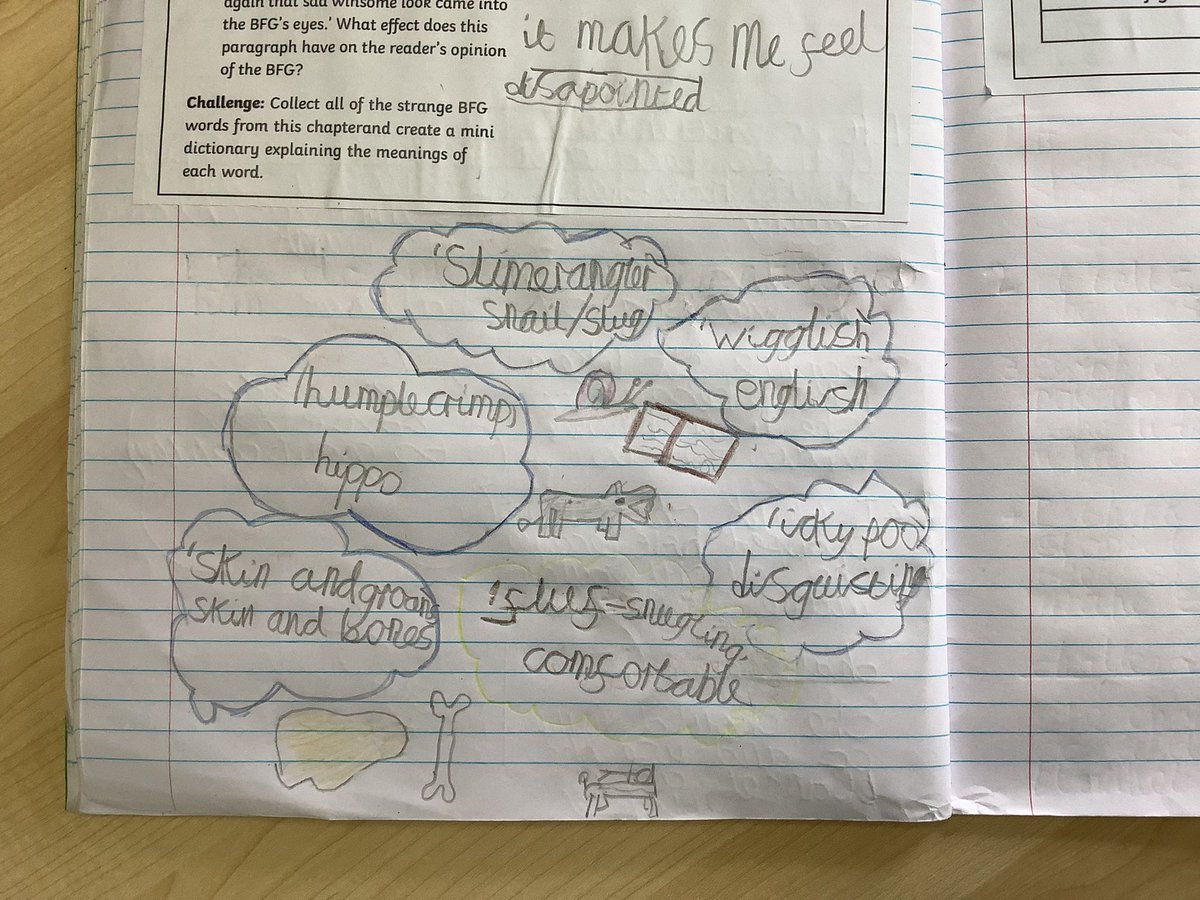 again that sad winsome look came into
the BFG's eyes.' What effect does this
paragraph have on the reader's opinion
of the BFG?
it makes me feel
disapointed
Challenge: Collect all of the strange BFG
words from this chapterand create a mini
dictionary explaining the meanings of
each word.
'Slimerangler'
Snail/slug
'wigglish'
english
'humplecrimp'
hippo
'icky poo'
disguisting
'skin and groans
skin and bones
'fluf = snugling,
comfortable